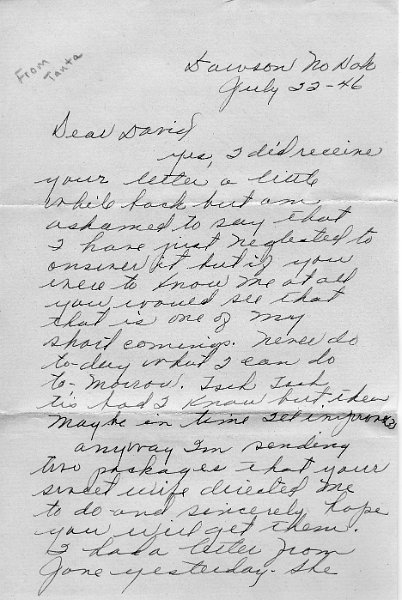 From
Tanta
Dawson No Dak
July 22-46
Dear David
Yes, I did receive
your letter a little
while back but am
ashamed to say that
I have just neglected to
answer it but if you
were to know me at all
you would see that
that is one of my
short comings. Never do
to-day what I can do
to-morrow. Tsch Tsch
tis bad I know but then
maybe in time I'll improve
anyway I'm sending
two packages that your
sweet wife directed me
to do and sincerely hope
you will get them.
I had a letter from
Jane yesterday. She